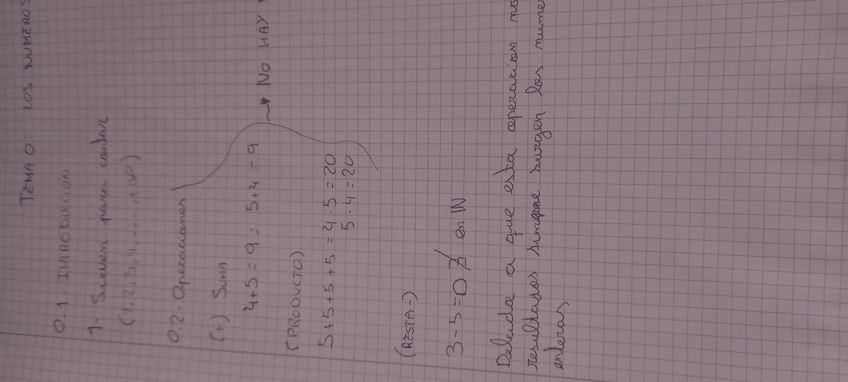 TEMA 0: LOS NUMEROS
0.1 INTRODUCCIÓN
1- Sirven para contar
(1,2,3,4.....,100)
0.2 Operaciones
(+) SUMA
4+5=9 ; 5+4=9
NO HAY
(PRODUCTO)
5+5+5+5=4·5=20
5·4=20
(RESTA-)
3-5= en IN
Debido a que esta operacion no
resultados surgen los nume
enteros